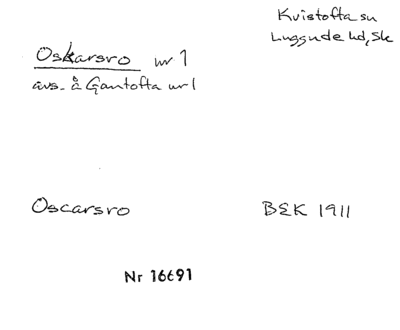 Kvistofta sn
Luggude hd, Sk
Oskarsro nr 1
avs. å Gantofta nr 1
Oscarsro
BEK 1911
Nr 16691